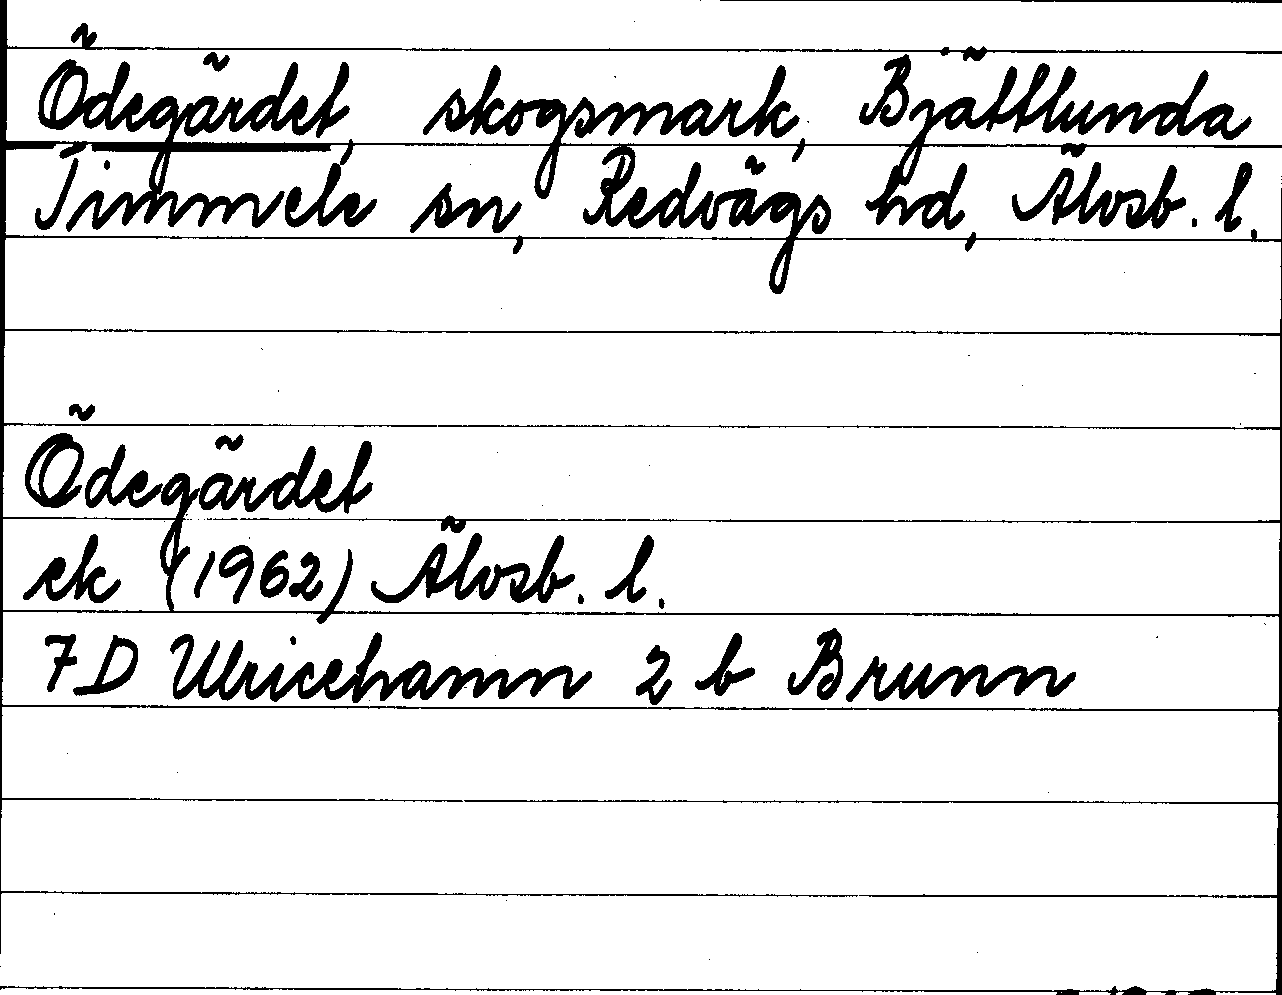 Ödegärdet, skogsmark, Bjättlunda
Timmele sn, Redvägs hd, Älvsb. l.
Ödegärdet
ek (1962) Älvsb. l.
7D Ulricehamn 2 b Brunn